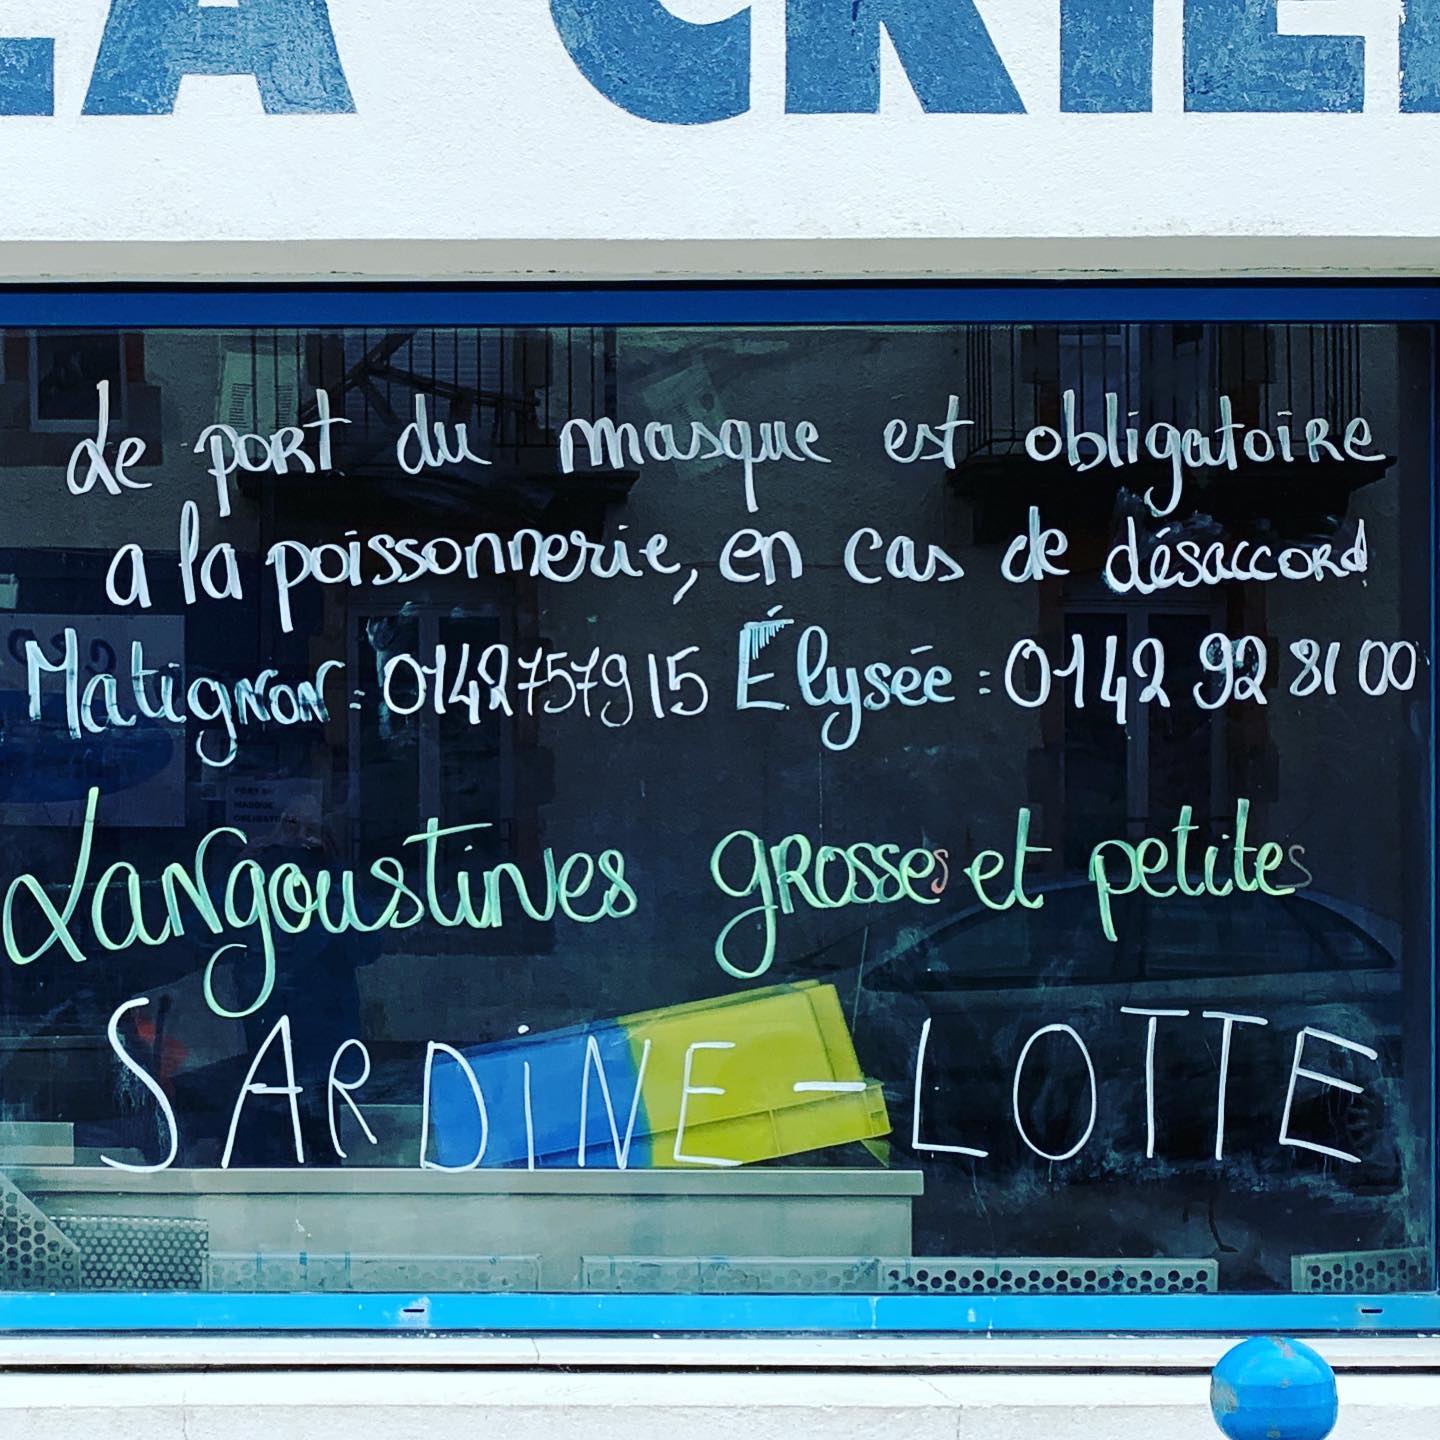 LA CRIÉE
Le port du masque est obligatoire
a la poissonnerie, en cas de désaccord
Matignon : 0142757915 Élysée : 0142 92 81 00
PORT DU
MASQUE
OBLIGATOIRE
Langoustines grosses et petites
SARDINE - LOTTE